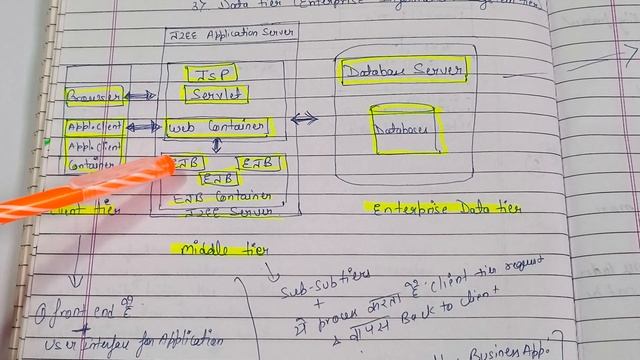 3) Data tier (Enterprise
J2EE Application Server
JSP
Servlet
Browser
Web Container
Appl.client
Appl.client
Container
EJB
EJB
EJB
EJB Container
J2EE Server
Database Server
Database
Client tier
Middle tier
Enterprise Data tier
front end है
User interface for Application
Sub-subtiers
+
ये process करता है client tier request
व वापस Back to client
Business App.